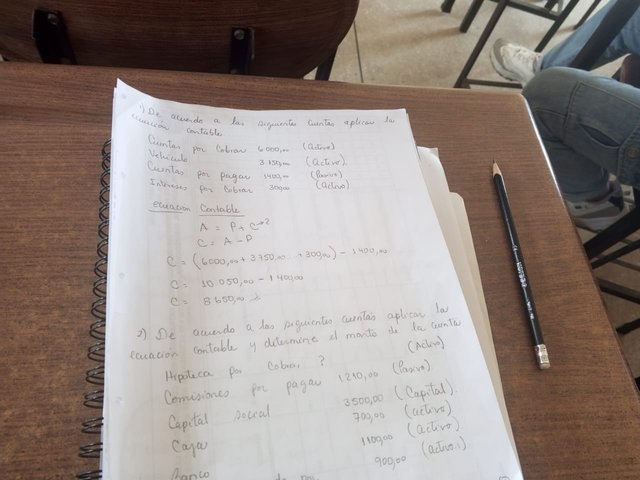 1) De acuerdo a las siguiente cuentas aplicar la
ecuación contable
Cuentas por Cobrar 6000,00 (Activo)
Vehículo 3750,00 (Activo)
Cuentas por pagar 1400,00 (Pasivo)
Intereses por Cobrar 300,00 (Activo)
ecuacion Contable
A = P + C → ?
C = A - P
C = (6000,00 + 3750,00 + 300,00) - 1400,00
C = 10.050,00 - 1400,00
C = 8650,00
2) De acuerdo a las siguientes cuentas aplicar la
ecuación contable y determine el monto de la cuenta
Hipoteca por Cobrar, ? (Activo)
Comisiones por pagar 1210,00 (Pasivo)
Capital social 3500,00 (Capital).
Caja 700,00 (activo).
1100,00 (Activo)
Banco 900,00 (activo.)
por